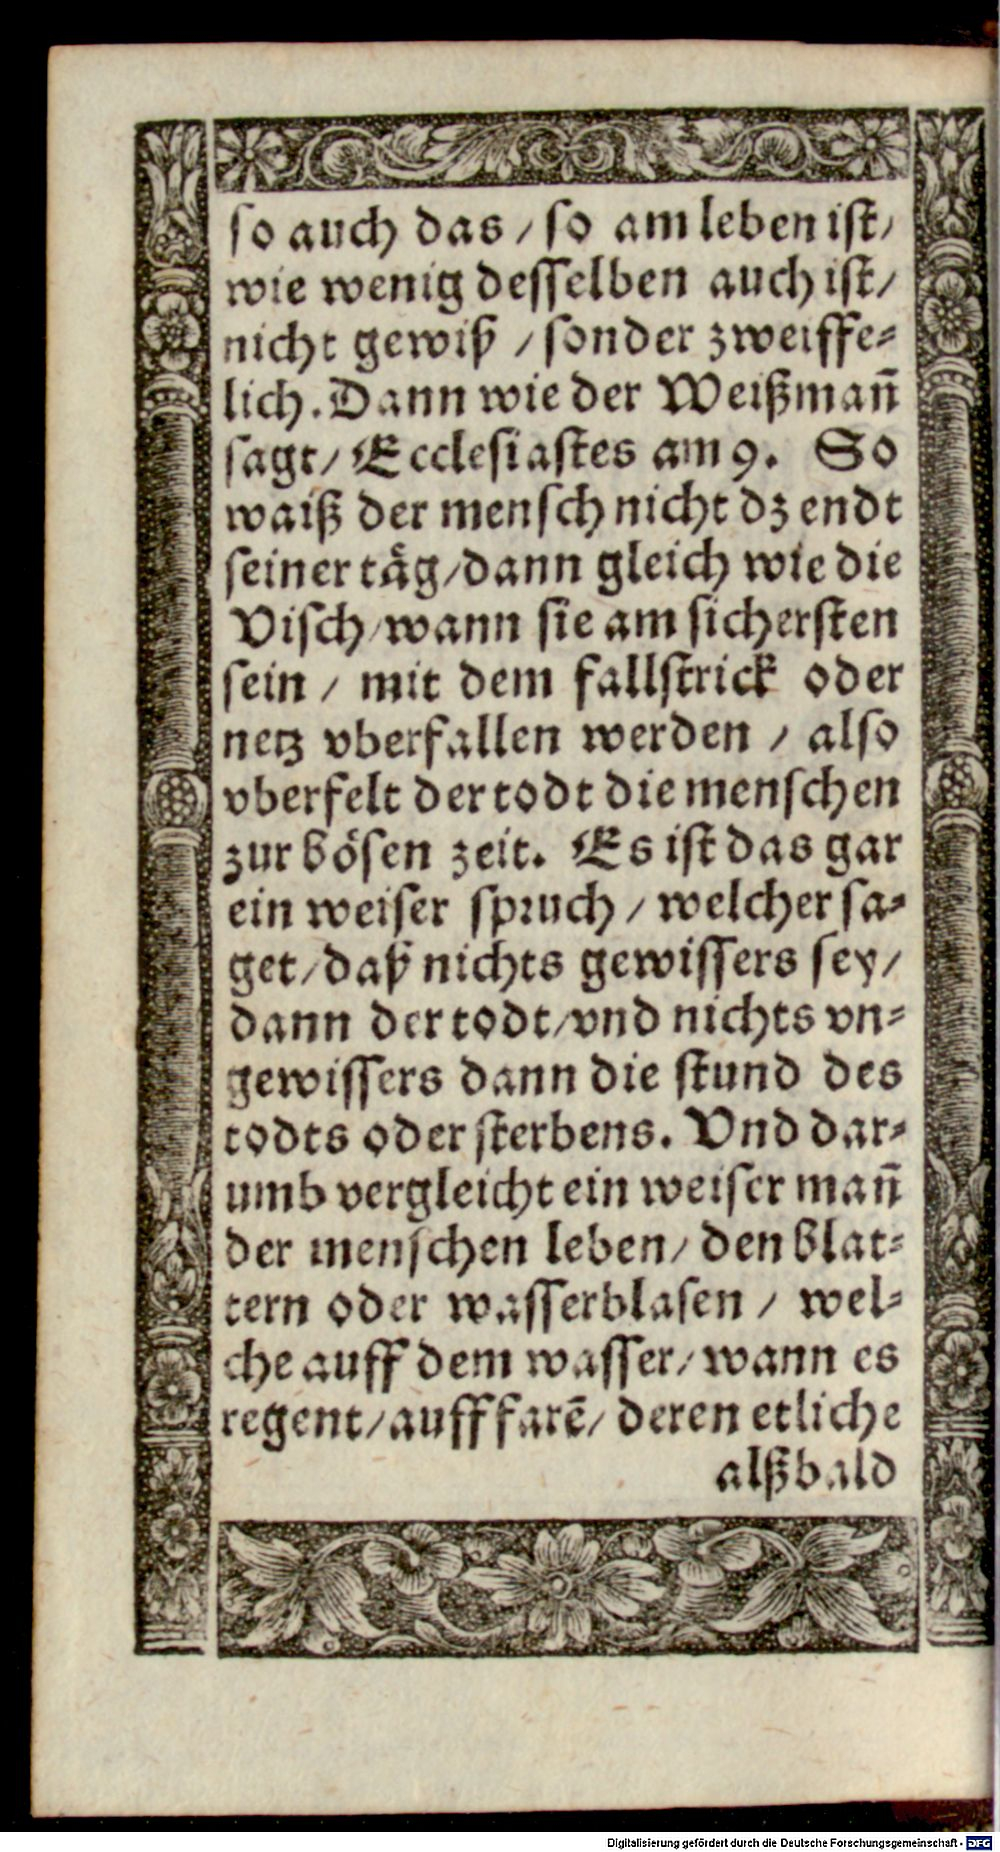 so auch das / so am leben ist /
wie wenig desselben auch ist /
nicht gewiß / sonder zweiffe-
lich. Dann wie der Weißmañ
sagt / Ecclesiastes am 9. So
waiß der mensch nicht dz endt
seiner tåg / dann gleich wie die
Visch / wann sie am sichersten
sein / mit dem fallstrick oder
netz vberfallen werden / also
vberfelt der todt die menschen
zur bösen zeit. Es ist das gar
ein weiser spruch / welcher sa-
get / daß nichts gewissers sey /
dann der todt / vnd nichts vn-
gewissers dann die stund des
todts oder sterbens. Vnd dar-
umb vergleicht ein weiser mañ
der menschen leben / den blat-
tern oder wasserblasen / wel-
che auff dem wasser / wann es
regent / auff farē / deren etliche
alßbald
Digitalisierung gefördert durch die Deutsche Forschungsgemeinschaft - DFG